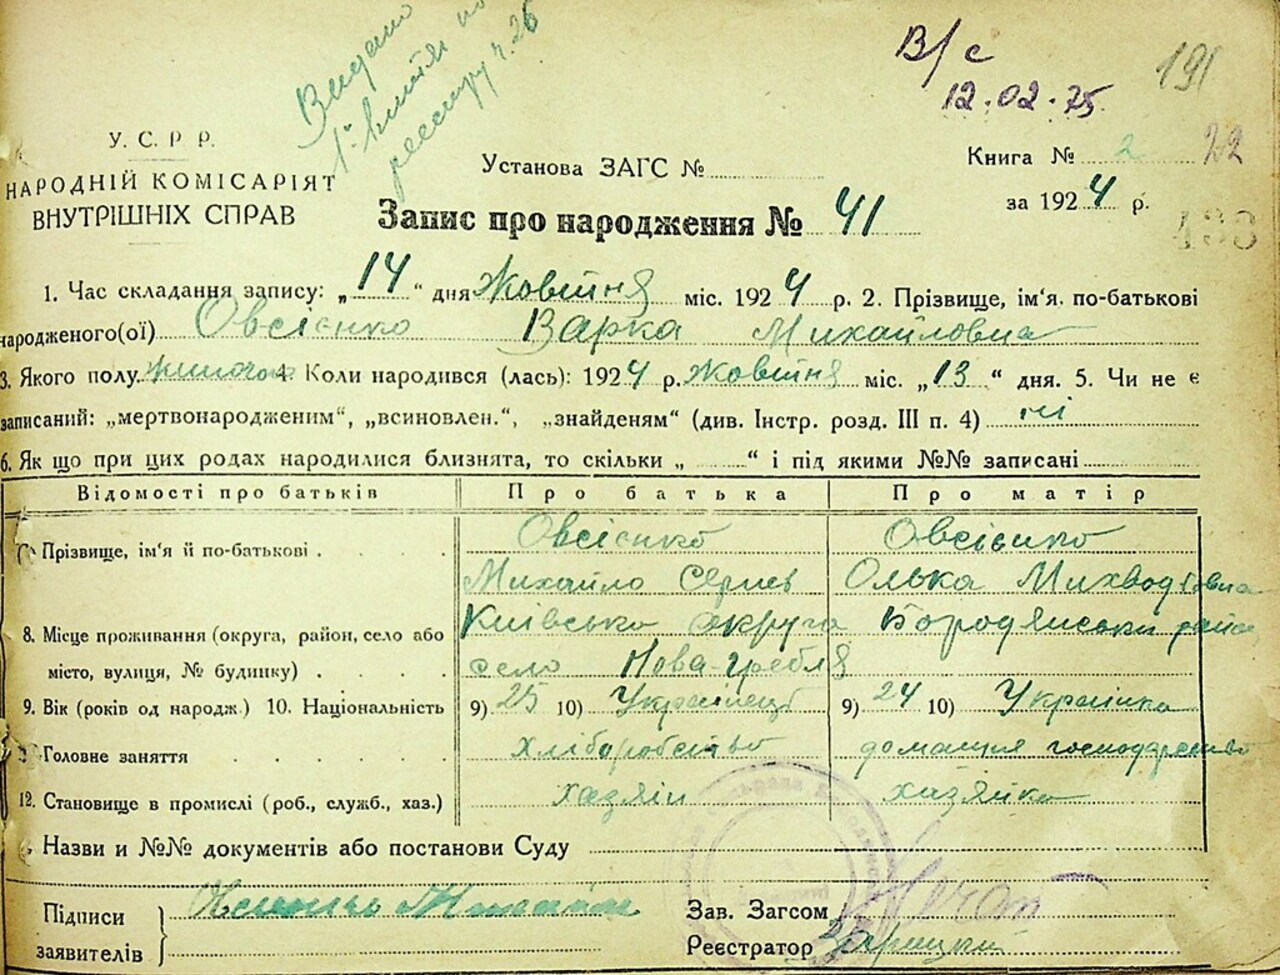 Видано
1й витяг по
реєстру ч. 26
В/с
12.02.75.
191
У. С. Р Р.
НАРОДНІЙ КОМІСАРІЯТ
ВНУТРІШНІХ СПРАВ
Установа ЗАГС №
Книга № 2 22
за 1924 р.
Запис про народження № 41
1. Час складання запису: „14“ дня Жовтня міс. 1924 р. 2. Прізвище, ім‘я. по-батькові
народженого(ої) Овсієнко Варка Михайловна
3. Якого полу жиночого 4. Коли народився (лась): 1924 р. Жовтня міс. „13“ дня. 5. Чи не є
записаний: „мертвонародженим“, „всиновлен.“, „знайденям“ (див. Інстр. розд. III п. 4) ні
6. Як що при цих родах народилися близнята, то скільки „ “ і під якими №№ записані
Відомості про батьків Про батька Про матір
Прізвище, ім‘я й по-батькові . Овсієнко Овсієнко
Михайло Серг. Олька
8. Місце проживання (округа, район, село або Київсько округа Бородянськи район
місто, вулиця, № будинку) . село Нова-Гребля
9. Вік (років од народж.) 10. Національність 9) 25 10) Українець 9) 24 10) Українка
Головне заняття хліборобство домашня господарство
12. Становище в промислі (роб., служб., хаз.) хазяін хазяйка
Назви и №№ документів або постанови Суду
Підписи Овсиенко
заявителів
Зав. Загсом
Реєстратор Зарицкий